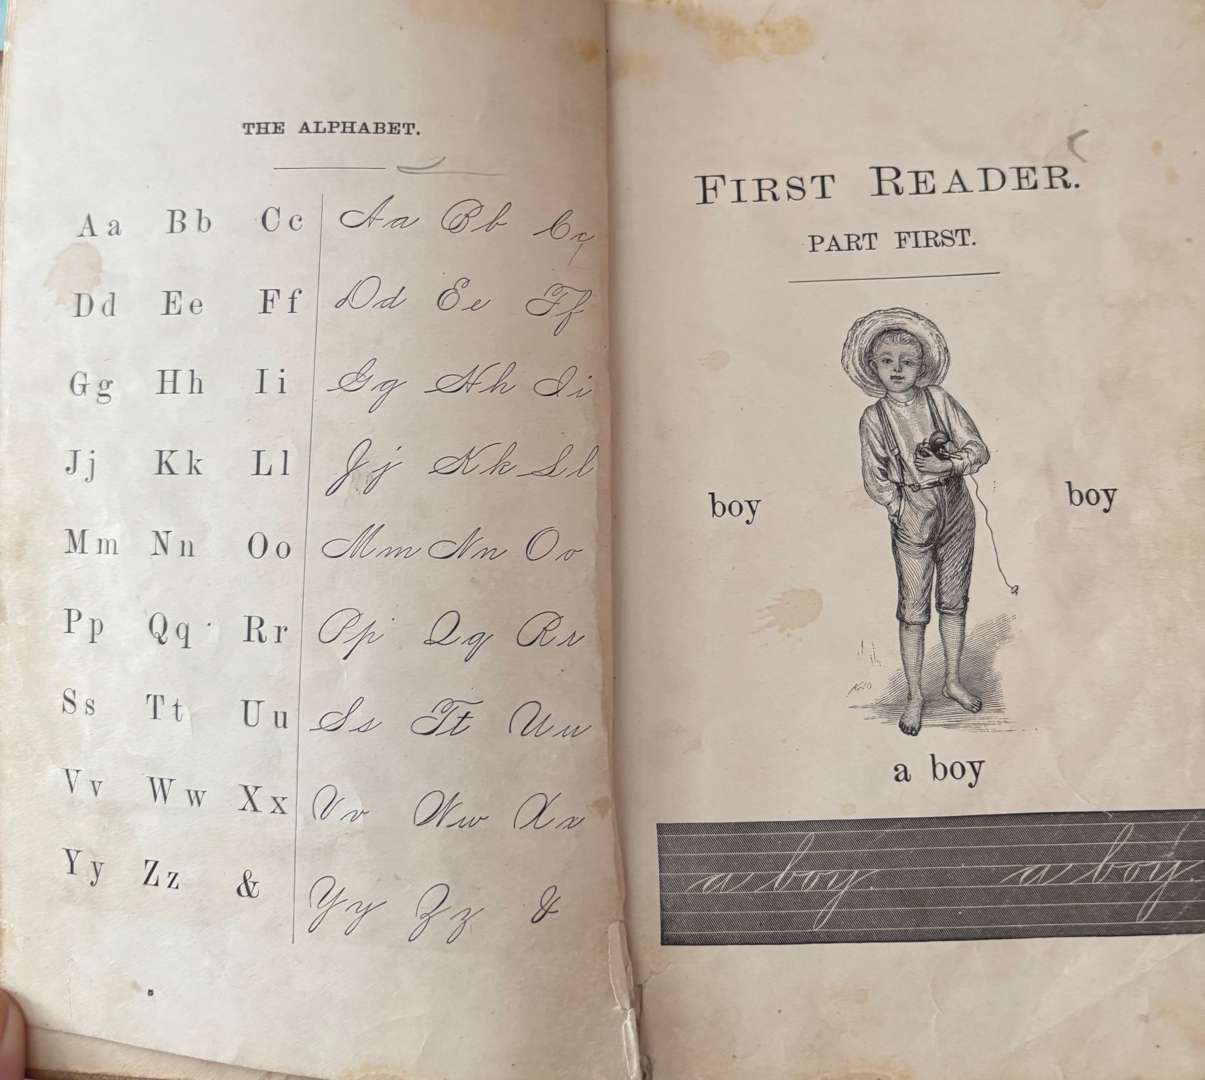 THE ALPHABET.
Aa Bb Cc Aa Bb Cc
Dd Ee Ff Dd Ee Ff
Gg Hh Ii Gg Hh Ii
Jj Kk Ll Jj Kk Ll
Mm Nn Oo Mm Nn Oo
Pp Qq Rr Pp Qq Rr
Ss Tt Uu Ss Tt Uu
Vv Ww Xx Vv Ww Xx
Yy Zz & Yy Zz &
FIRST READER.
PART FIRST.
boy boy
a boy
a boy a boy.